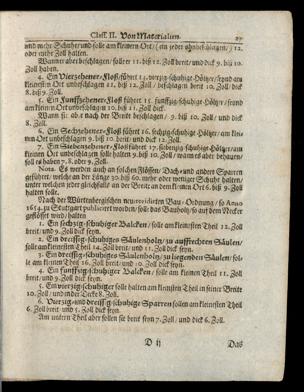 Class. II. Von Materialien. 27
und mehr Schuhe und solle am kleinern Ort / (ein jeder unbeschlagen /) 12.
oder mehr Zoll halten.
Wann er aber beschlagen / soll er 11. biß 12. Zoll breit / und dick 9. biß 10.
Zoll haben.
4. Ein Vierzehener-Floß führt 14. vierzig-schuhige Höltzer / seynd am
kleinsten Ort unbeschlagen 11. biß 12. Zoll / beschlagen breit 10. Zoll / dick
8. biß 9. Zoll.
5. Ein Funffzehener-Floß führt 15. funffzig-schuhige Höltzer / seynd am
kleinsten Ort unbeschlagen 10. biß 11. Zoll dick.
Wann sie aber nach der Breit beschlagen / 9. biß 10. und dick 8. biß 9.
Zoll.
6. Ein Sechzehener-Floß führt 16. sechzig-schuhige Höltzer / am kleinsten
Ort unbeschlagen 9. biß 10. Zoll breit / und dick 8. biß 9. Zoll.
7. Ein Siebenzehener-Floß führet 17. siebenzig-schuhige Höltzer / am
kleinsten Ort unbeschlagen 9. biß 10. Zoll / wann es aber behauen /
soll es haben 7. 8. oder 9. Zoll.
Nota. Es werden auch an solchen Flössen / Dach- und andere Sparren
geführet / welche an der Länge 50. biß 60. mehr oder weniger Schuhe halten /
unter welchen jeder gleichfalls an der Breite an dem kleinern Ort 6. biß 9. Zoll
halten solle.
Nach der Würtembergischen neu-revidirten Bau-Ordnung / so Anno
1654. zu Stuttgart publiciret worden / solle das Bauholtz / so auf dem Necker
geflösset wird / halten
1. Ein sechzig-schuhiger Balcken / solle am kleinsten Theil 12. Zoll
breit / und 9. Zoll dick seyn.
2. Ein dreyssig-schuhiges Säulenholtz / zu auffrechten Säulen /
solle am kleinsten Theil 14. Zoll breit / und 11. Zoll dick seyn.
3. Ein dreyssig-schuhiges Säulenholtz / zu liegenden Säulen / solle
am kleinsten Theil 16. Zoll breit / und 10. Zoll dick seyn.
4. Ein funffzig-schuhiger Balcken / solle am kleinen Theil 11. Zoll
breit / und 9. Zoll dick seyn.
5. Ein vierzig-schuhiger solle halten am kleinsten Theil in seiner Breit
10. Zoll / und in der Dicke 8. Zoll.
6. Vierzig- und dreissig-schuhige Sparren sollen am kleinsten Theil
6. Zoll breit / und 5. Zoll dick seyn.
Am untern Theil aber sollen sie breit seyn 7. Zoll / und dick 6. Zoll.
D ij Das